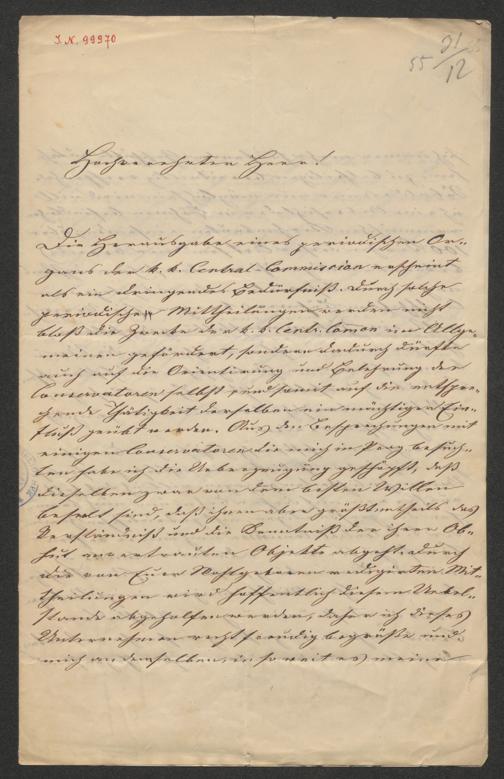 I. N. 99970
55 21/12
Hochverehrter Herr!
Die Herausgabe eines periodischen Or-
gans der k. k. Central-Commission erscheint
als ein dringendes Bedürfniß. Durch solche
periodische Mittheilungen werden nicht
bloß die Zwecke der k. k. Centr. Comon im Allge-
meinen gefördert, sondern dadurch dürften
auch auf die Orientirung und Belehrung der
Conservatoren selbst und somit auf die entspre-
chende Thätigkeit derselben ein mächtiger Ein-
fluß geübt werden. Aus den Besprechungen mit
einigen Conservatoren die mich in Prag besuch-
ten habe ich die Ueberzeugung geschöpft, daß
dieselben zwar von dem besten Willen
beseelt sind, daß ihnen aber größtentheils das
Verständniß und die Kenntniß der ihrer Ob-
hut anvertrauten Objekte abgeht. Durch
die von Euer Wohlgeboren redigirten Mit-
theilungen wird hoffentlich diesem Uebel-
stande abgeholfen werden, daher ich dieses
Unternehmen recht freudig begrüße und
mich an demselben, in so weit es meine